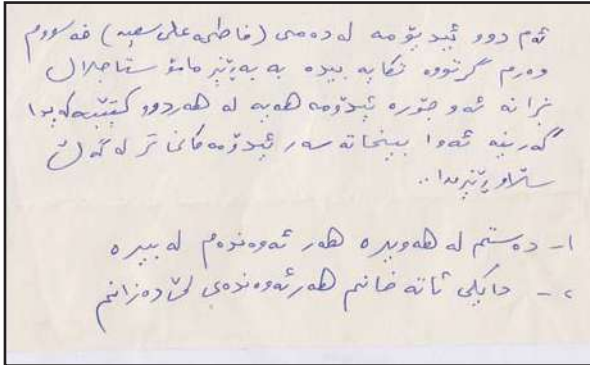 ئەم دوو ئیدیۆمە لە دەمی (فاطمە علی سعید) خەسووم
وەرم گرتووە تکایە بیدە بە بەڕێز مامۆستا جلال
بزانە ئەو جۆرە ئیدیۆمە هەیە لە هەردوو کتێبەکەیدا
گەر نیە ئەوا بیخاتە سەر ئیدیۆمەکانی تر لە گەڵ
سڵاو ڕێزمدا..
١- دەستم لە هەویرە هەر ئەوەندەم لە بیرە
٢- دایکی ئاتە خانم هەر ئەوەندەی لێ دەزانم